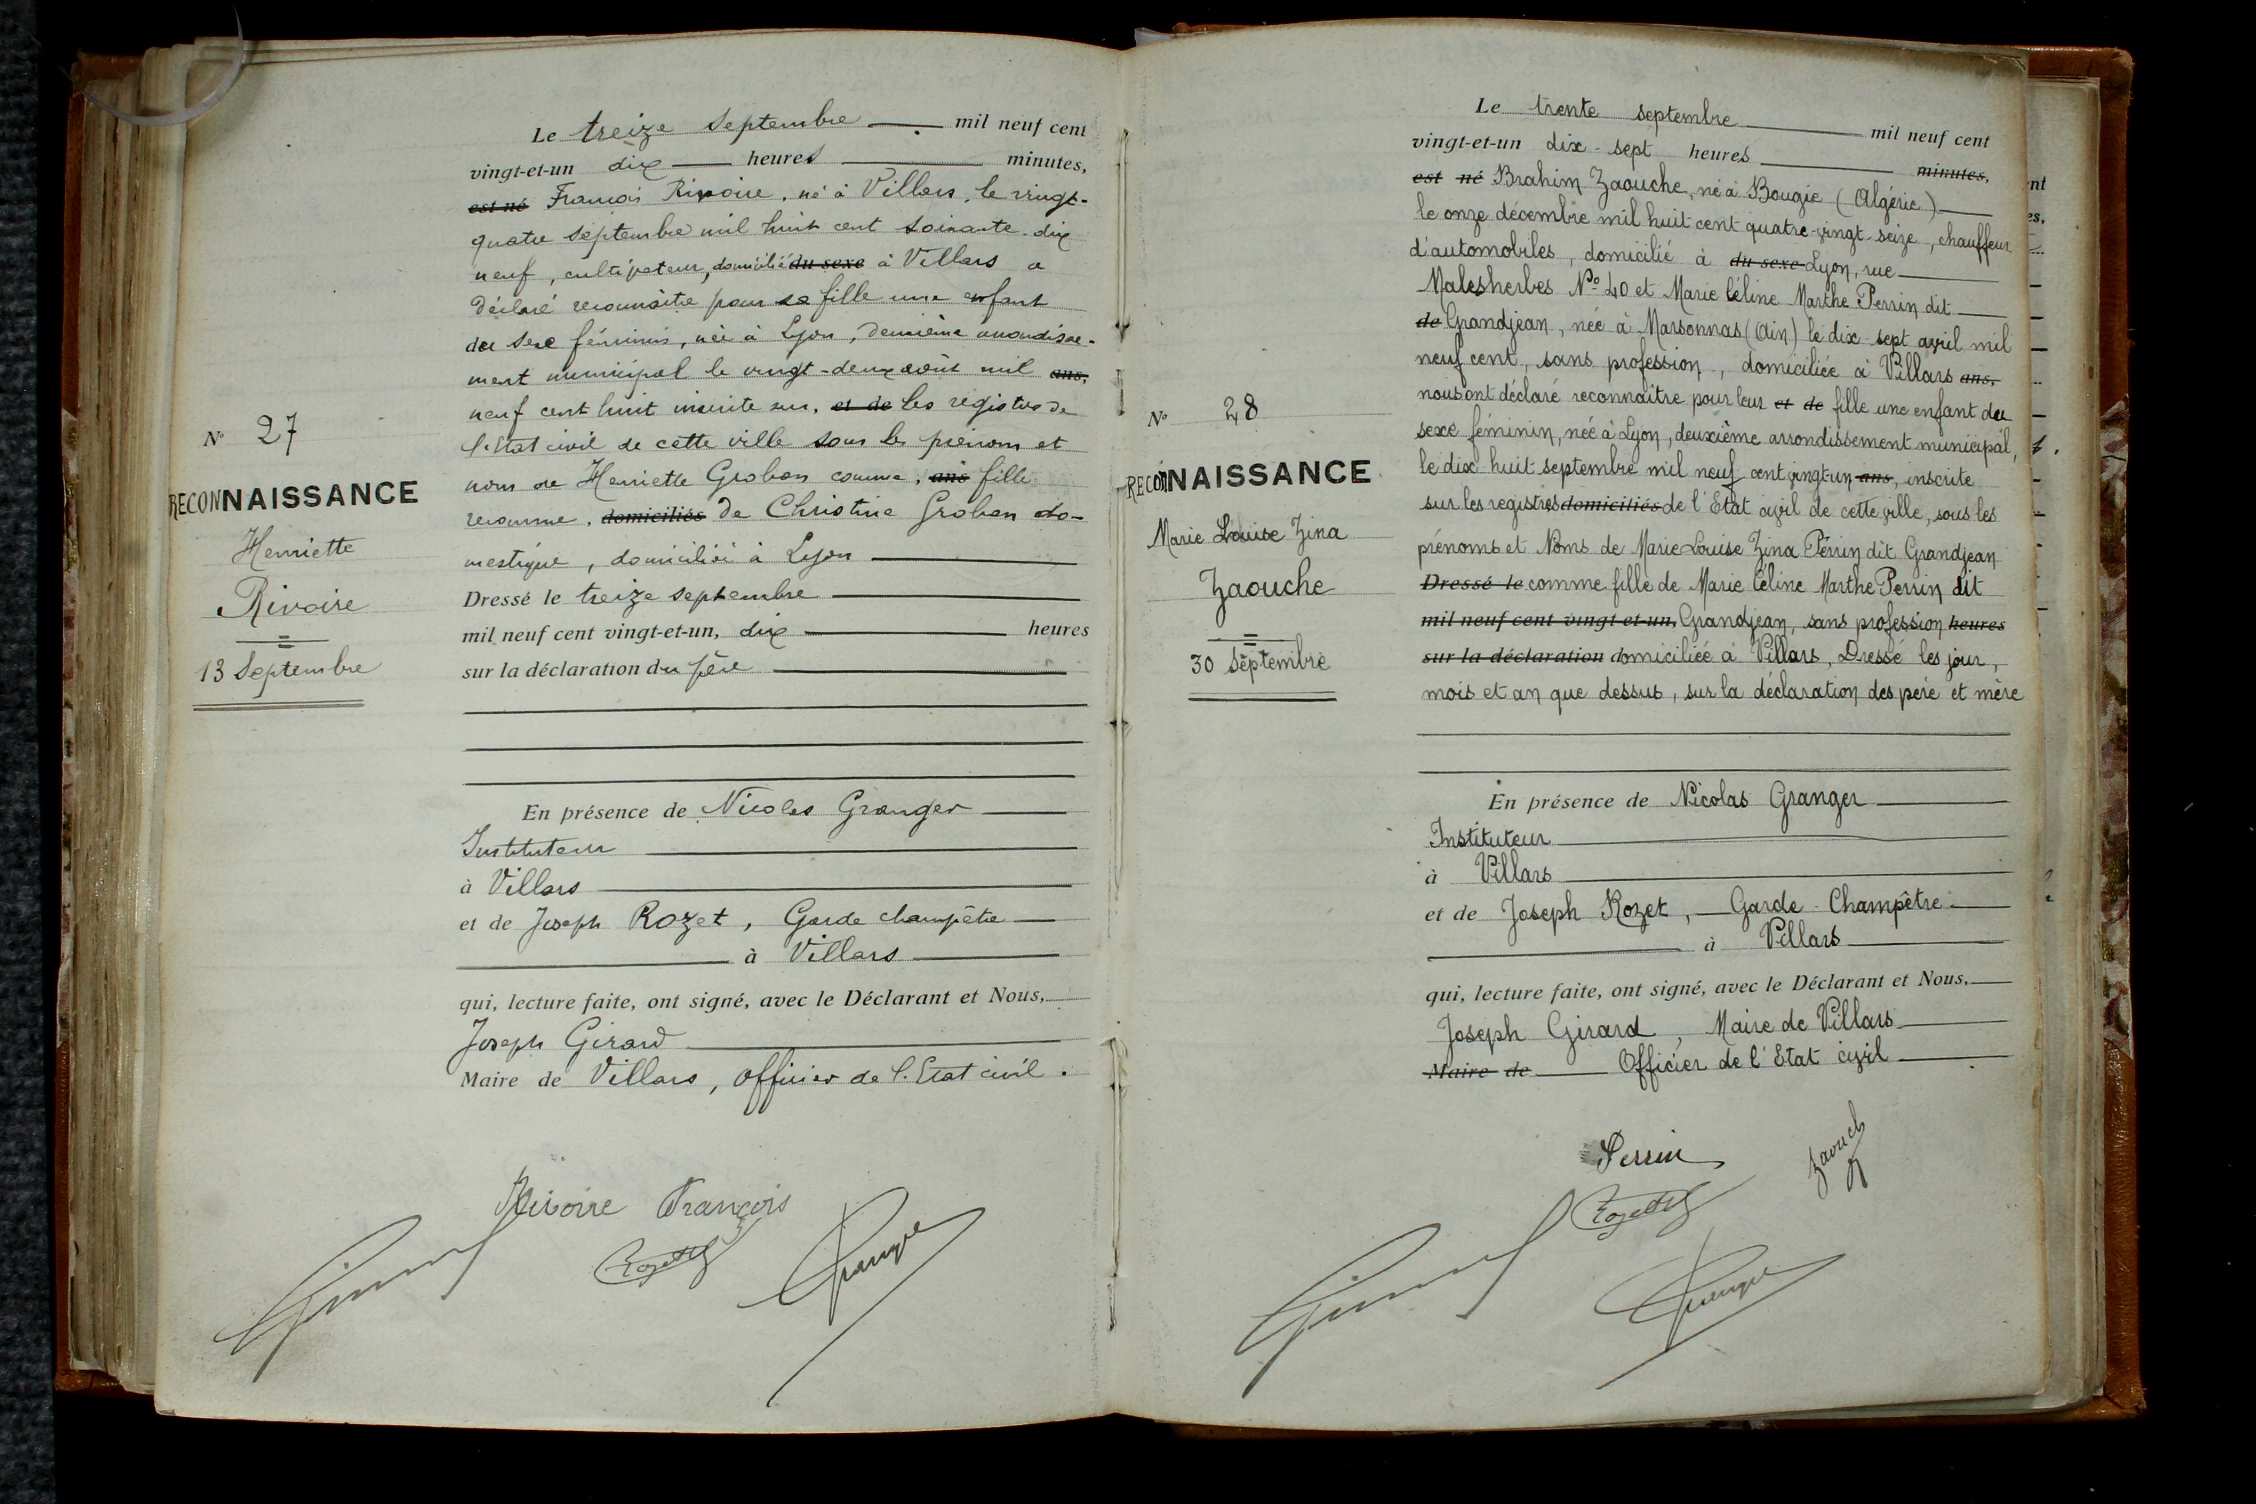 Le treize Septembre mil neuf cent
vingt-et-un dix heures minutes,
est né François Rivoire, né à Villars, le vingt-
quatre septembre mil huit cent soixante-dix
neuf, cultivateur, domicilié du sexe à Villars a
déclaré reconnaître pour sa fille une enfant
du sexe féminin, née à Lyon, deuxième arrondisse-
ment municipal le vingt-deux août mil ans,
neuf cent huit inscrite sur, et de les registres de
l'Etat civil de cette ville sous les prénom et
nom de Henriette Groban comme, ans fille
reconnue, domiciliés de Christine Groban do-
mestique, domiciliée à Lyon
Dressé le treize septembre
mil neuf cent vingt-et-un, dix heures
sur la déclaration du père
N° 27
RECONNAISSANCE
Henriette
Rivoire
13 Septembre
En présence de Nicolas Granger
Instituteur
à Villars
et de Joseph Rozet, Garde champêtre
à Villars
qui, lecture faite, ont signé, avec le Déclarant et Nous,
Joseph Girard
Maire de Villars, officier de l'Etat civil.
Rivoire François
Le trente septembre mil neuf cent
vingt-et-un dix-sept heures minutes,
est né Brahim Zaouche, né à Bougie (Algérie)
le onze décembre mil huit cent quatre-vingt-seize, chauffeur
d'automobiles, domicilié à du sexe Lyon, rue
Malesherbes N° 40 et Marie Céline Marthe Perrin dit
de Grandjean, née à Marsonnas (Ain) le dix-sept avril mil
neuf cent, sans profession, domiciliée à Villars ans,
nous ont déclaré reconnaître pour leur et de fille une enfant du
sexe féminin, née à Lyon, deuxième arrondissement municipal,
le dix huit septembre mil neuf cent vingt-un ans, inscrite
sur les registres domiciliés de l'Etat civil de cette ville, sous les
prénoms et Noms de Marie Louise Zina Perrin dit Grandjean
Dressé le comme fille de Marie Céline Marthe Perrin dit
mil neuf cent vingt-et-un, Grandjean, sans profession heures
sur la déclaration domiciliée à Villars, Dressé les jour,
mois et an que dessus, sur la déclaration des père et mère
N° 28
RECONNAISSANCE
Marie Louise Zina
Zaouche
30 Septembre
En présence de Nicolas Granger
Instituteur
à Villars
et de Joseph Rozet, Garde-Champêtre
à Villars
qui, lecture faite, ont signé, avec le Déclarant et Nous,
Joseph Girard, Maire de Villars
Maire de Officier de l'Etat civil
Perrin
Zaouch